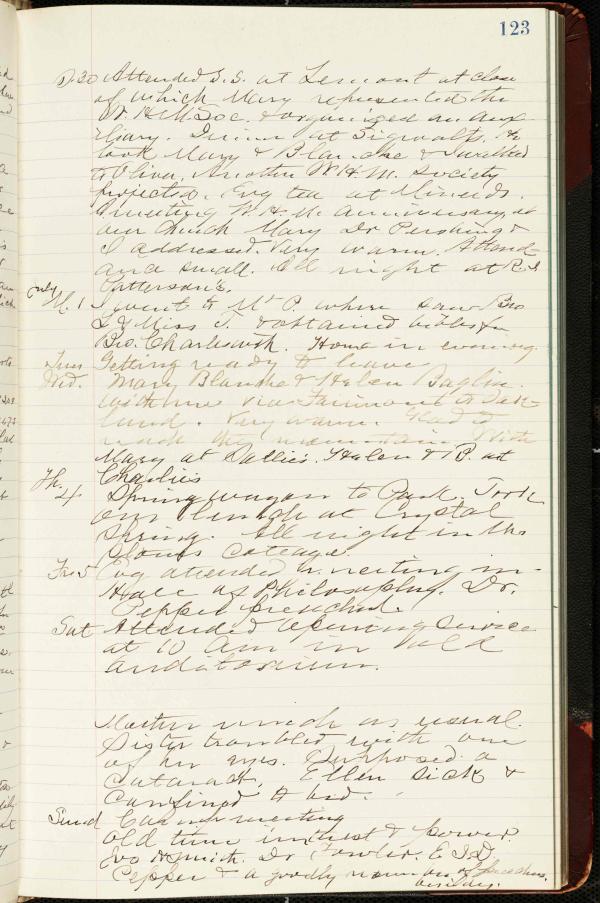 123
30 Attended S.S. at Lemont at close
of which Mary represented the
W.H.M. Soc. & organized an Aux-
iliary. Dinner at Sigwalts. He
took Mary & Blan. She & I walked
to Oliver. Another W.H.M. Society
projected. Evg tea at
meeting W.H.M. Anniversary at
our Church Mary Dr Pershing &
I addressed. Very warm. Attend-
ance small. All night at R.
Patterson's.
July
M. 1 I went to Mt P. where saw Bro
& Miss T. & obtained bibles for
Bro. Charlesworth. Home in evening.
Tues Getting ready to leave
Wed. Mary Blanche & Helen
with me via Fairmont to Oak-
land. Very warm. Glad to
reach the mountains. With
Mary at Dallie's. Helen & B. at
Charlie's
Th. 4 Spring wagon to Park. Took
our lunch at Crystal
Spring. All night in the
cottage.
Fri 5 Evg attended a meeting in
Hall of Philosophy. Dr.
Pepper preached.
Sat Attended opening service
at 10 Am in
auditorium.
Mother much as usual.
Sister troubled with one
of her eyes. Supposed a
cataract. Ellen sick &
confined to bed.
Sund Camp meeting
old time interest & power.
Dr Fowler. E
Pepper & a goodly number of preachers
besides.